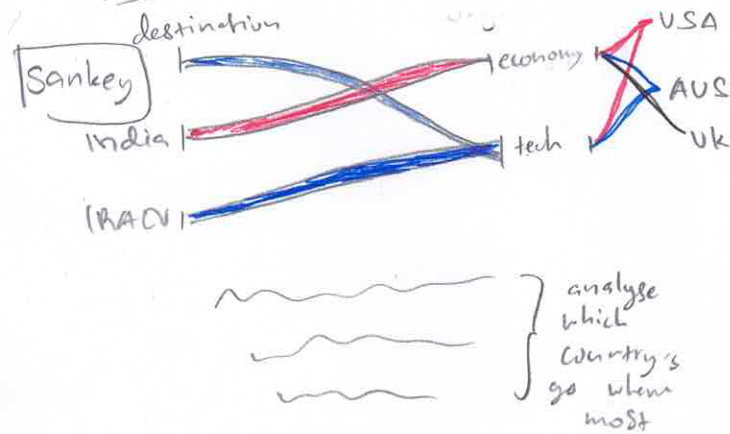 destination
Sankey
India
IRAN
economy
tech
USA
AUS
UK
analyse
which
country's
go where
most